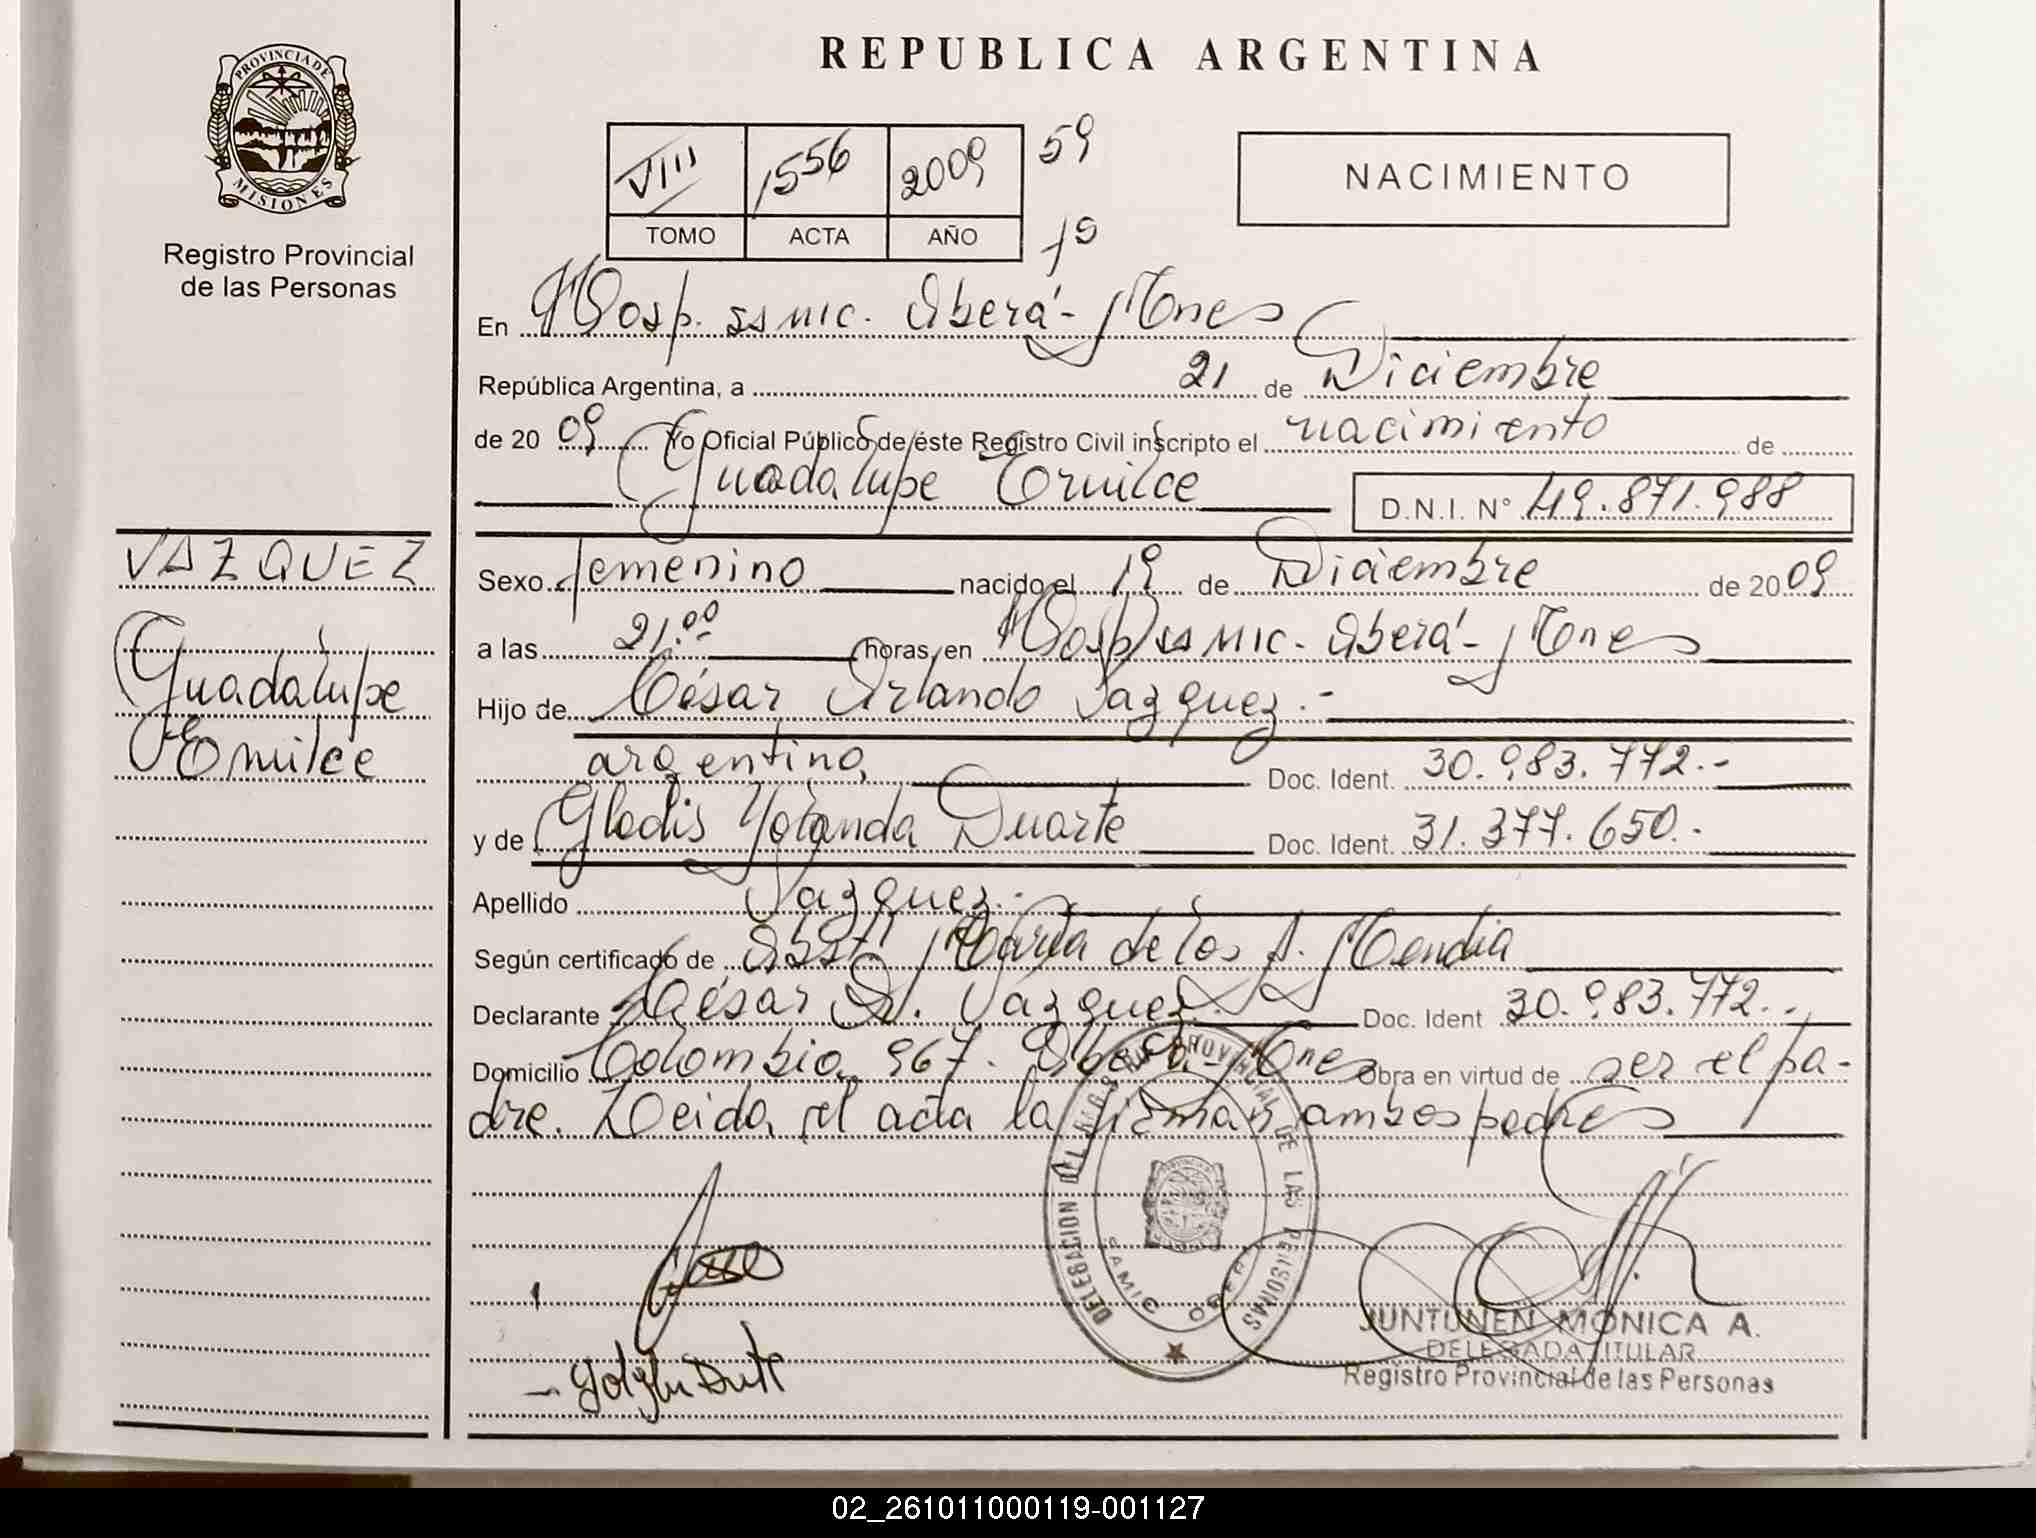 REPUBLICA ARGENTINA
PROVINCIA DE
MISIONES
Registro Provincial
de las Personas
VIII 1556 2009 59
TOMO ACTA AÑO 1º
NACIMIENTO
En Hosp. ss MIC. Oberá - Mnes
República Argentina, a 21 de Diciembre
de 20 09 Yo Oficial Público de éste Registro Civil inscripto el nacimiento de
Guadalupe Emilce D.N.I. N° 49.871.988
VAZQUEZ
Guadalupe
Emilce
Sexo femenino nacido el 19 de Diciembre de 20 09
a las 21.00 horas, en Hosp ss MIC. Oberá - Mnes
Hijo de César Orlando Vazquez.-
argentino, Doc. Ident. 30.983.772.-
y de Gladis Yolanda Duarte Doc. Ident. 31.377.650.-
Apellido Vazquez.-
Según certificado de Obst. María de los A. Mendia
Declarante César O. Vazquez. Doc. Ident 30.983.772.-
Domicilio Colombia 967. Oberá - Mnes Obra en virtud de ser el pa-
dre. Leida el acta la firman ambos padres
DELEGACION DEL REGISTRO PROVINCIAL DE LAS PERSONAS
SAMIC OBERA
JUNTUNEN MONICA A.
DELEGADA TITULAR
Registro Provincial de las Personas
02_261011000119-001127